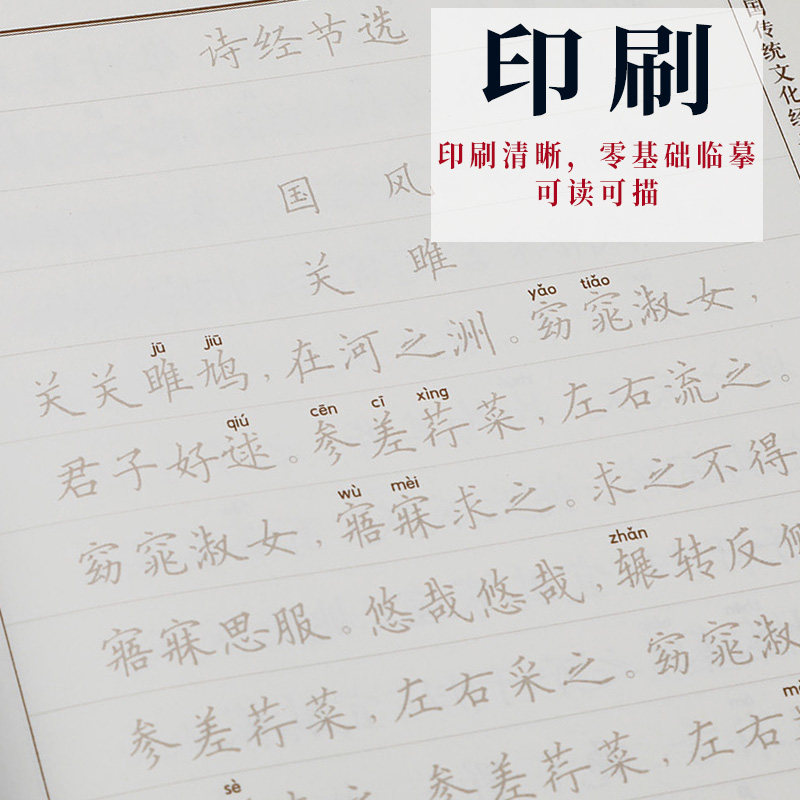 诗经节选
印刷
印刷清晰，零基础临摹
可读可描
国传统文化经
国风
关雎
jū jiū yǎo tiǎo
关关雎鸠，在河之洲。窈窕淑女，
qiú cēn cī xìng
君子好逑。参差荇菜，左右流之。
wù mèi
窈窕淑女，寤寐求之。求之不得
zhǎn
寤寐思服。悠哉悠哉，辗转反侧
参差荇菜，左右采之。窈窕淑
sè
参差荇菜，左右